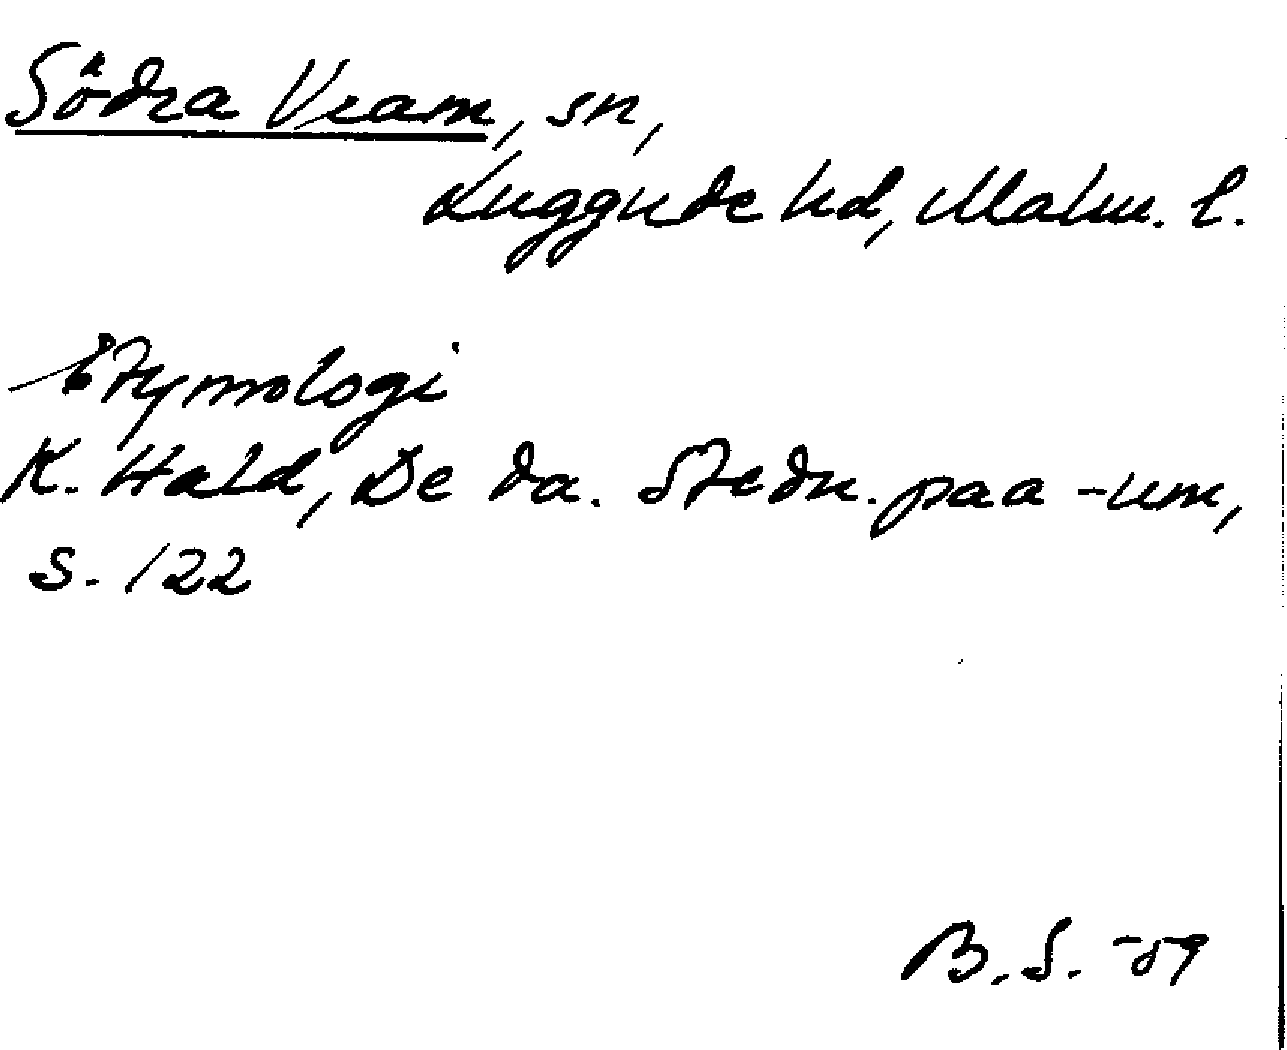 Södra Vram, sn,
Luggude hd, Malm. l.
Etymologi
K. Hald, De da. Stedn. paa -um,
s. 122
B.S. -59